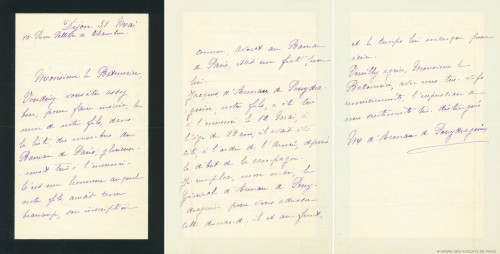 Dijon 31 Mai
10 Rue Vaillant à Chanelin.
Monsieur le Bâtonnier,
Voudriez vous être assez
bon, pour faire inscrire, le
nom de notre fils, dans
la liste, des membres du
Barreau de Paris, glorieu-
sement tués à l'ennemi.
C'est un honneur auquel
notre fils aurait tenu
beaucoup, son inscription
comme, avocat au Barreau
de Paris, était un fait tout
Jacques d'Arman de Pouydra-
guin notre fils, a été tué
à l'ennemi le 12 Mai, à
l'âge de 22 ans, il avait été
cité, à l'ordre de l'Armée, depuis
le début de la campagne.
Je remplace, mon mari, le
Général d'Arman de Pouy-
draguin pour vous adresser
cette demande, il est au front,
et le temps lui manque pour
écrire.
Veuillez agréer, Monsieur le
Bâtonnier, avec mes très
remerciements, l'expression de
mes sentiments très distingués
Mse d'Arman de Pouydraguin
© ORDRE DES AVOCATS DE PARIS